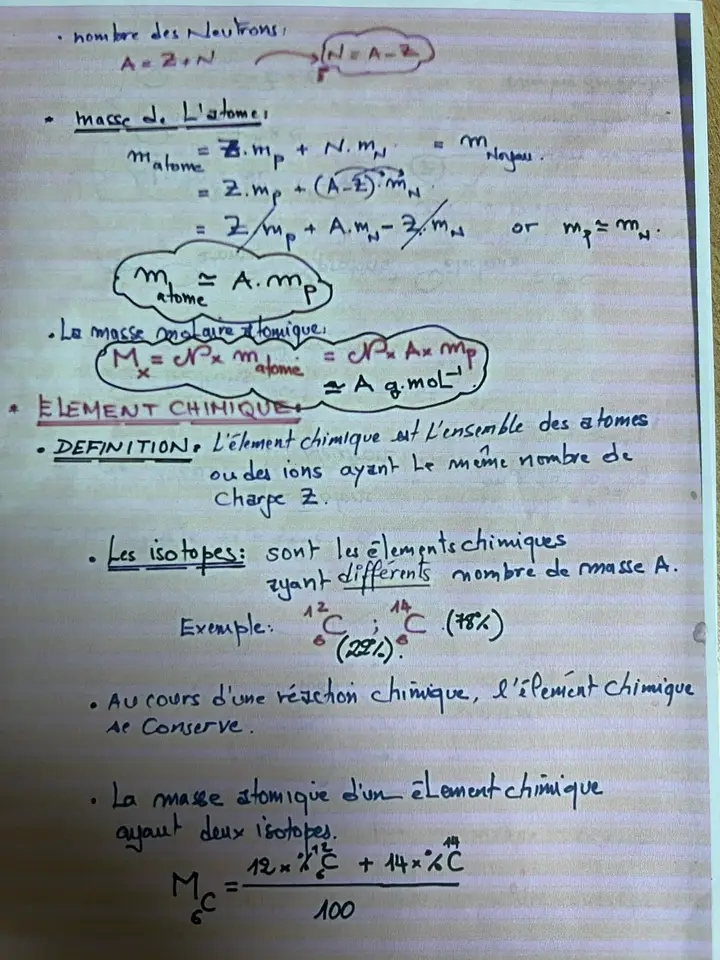 • nombre des Neutrons:
A = Z + N → N = A - Z
* masse de L'atome:
m atome = Z.mp + N.mN = m Noyau.
= Z.mp + (A-Z).mN
= Z/mp + A.mN - Z.mN or mp ≃ mN.
m atome ≃ A.mp
• La masse molaire atomique:
Mx = N x m atome = N x A x mp
≃ A g.moL⁻¹
* ELEMENT CHIMIQUE:
• DEFINITION: L'élement chimique est L'ensemble des atomes
ou des ions ayant Le même nombre de
charge Z.
• Les isotopes: sont les élements chimiques
ayant différents nombre de masse A.
Exemple: ¹²₆C ; ¹⁴₆C (78%)
(22%).
• Au cours d'une réaction chimique, l'élement chimique
se conserve.
• La masse atomique d'un éLement chimique
ayant deux isotopes.
M₆C = (12 x % ¹²₆C + 14 x % ¹⁴C) / 100